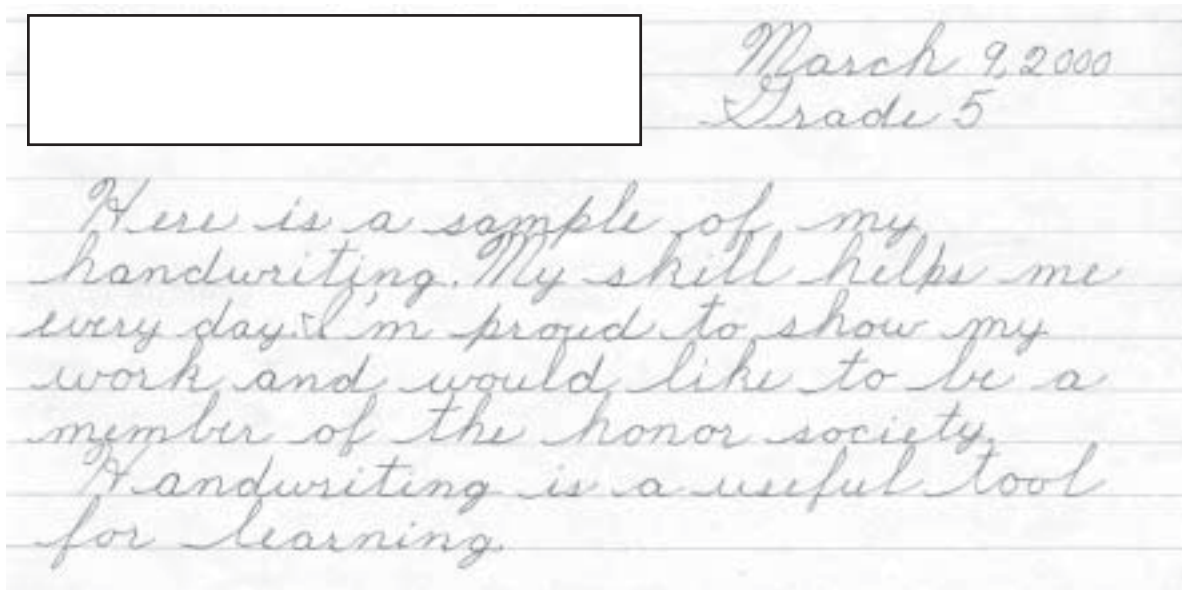 March 9, 2000
Grade 5
Here is a sample of my
handwriting. My skill helps me
every day. I'm proud to show my
work and would like to be a
member of the honor society.
Handwriting is a useful tool
for learning.